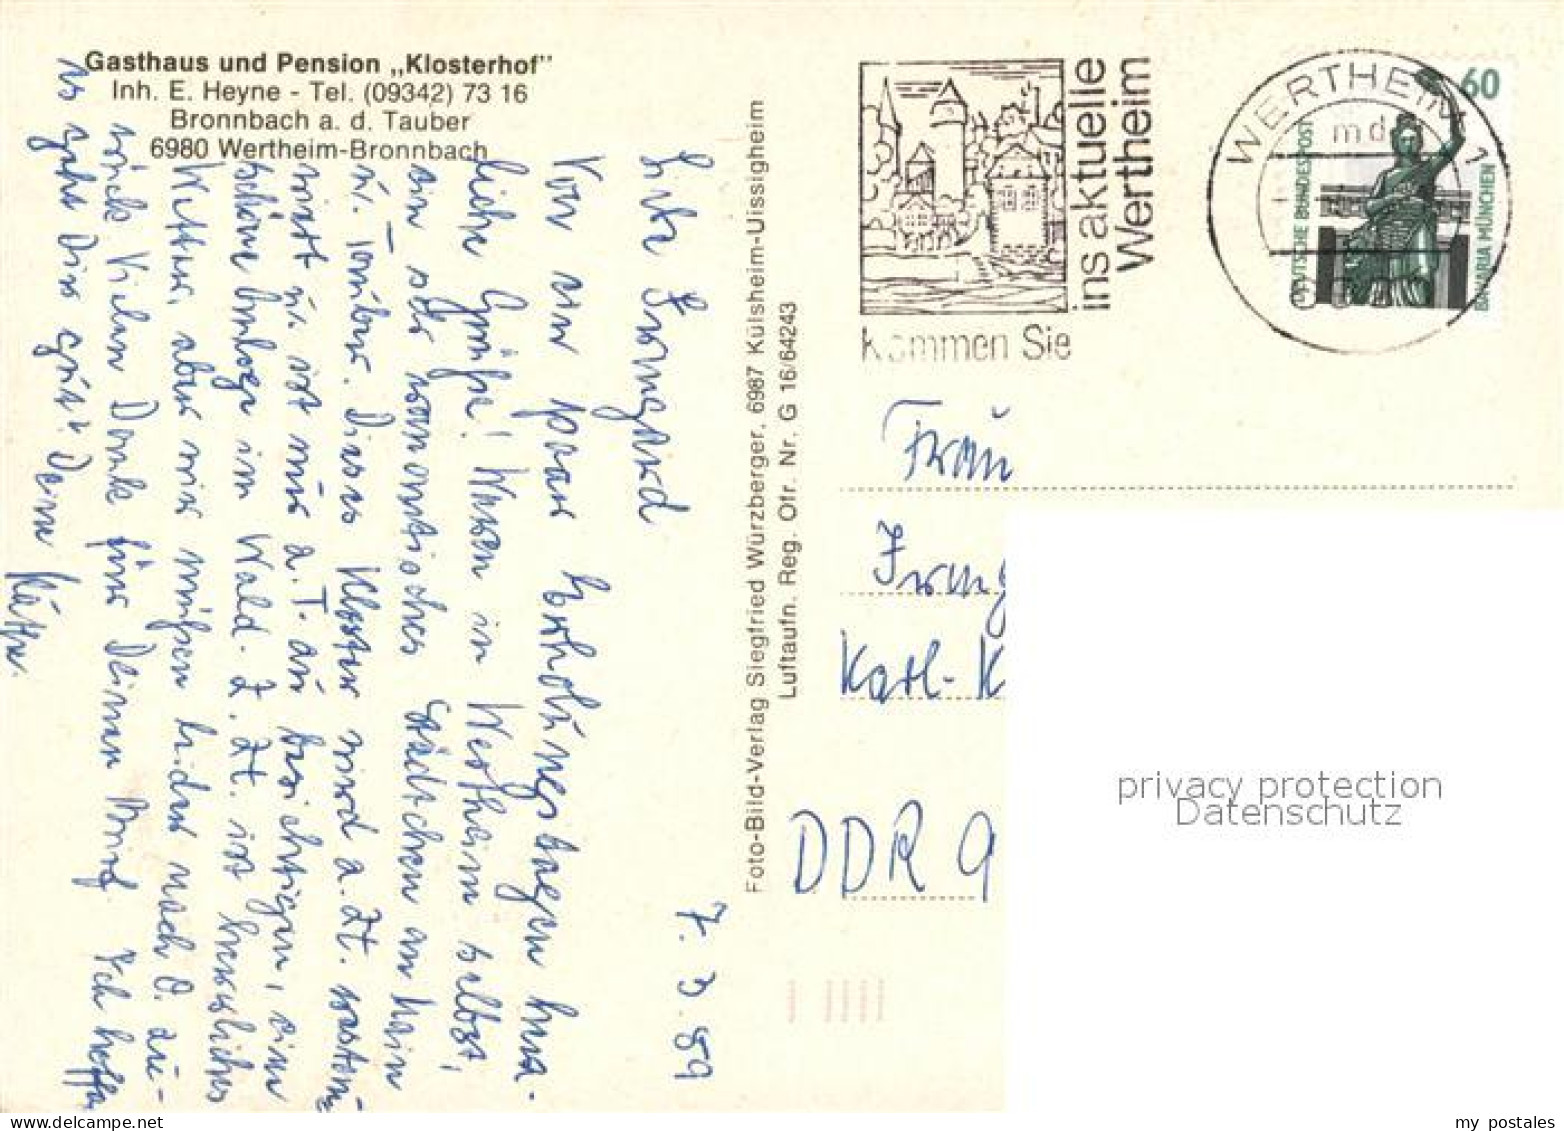 Gasthaus und Pension „Klosterhof"
Inh. E. Heyne - Tel. (09342) 73 16
Bronnbach a. d. Tauber
6980 Wertheim-Bronnbach
7. 3. 89
Liebe Irmgard
Von ein paar Erholungstagen herz-
liche Grüße! Waren in Wertheim selbst,
ein sehr romantisches Städtchen an Main
u. Tauber. Dieses Kloster wird z. Zt. restau-
riert u. ist nur z. T. zu besichtigen, eine
schöne Anlage im Wald. Z. Zt. ist herrliches
Wetter, aber wir müssen leider nach O. zu-
rück. Vielen Dank für Deinen Brief. Ich hoffe
es geht Dir gut! Deine Käthe.
Foto-Bild-Verlag Siegfried Würzberger, 6987 Külsheim-Uissigheim
Luftaufn. Reg. Ofr. Nr. G 16/64243
ins aktuelle
Wertheim
Kommen Sie
WERTHEIM 1
md
60
DEUTSCHE BUNDESPOST
BAVARIA MÜNCHEN
Frau
Irmg
Karl-K
DDR 9
privacy protection
Datenschutz
my postales